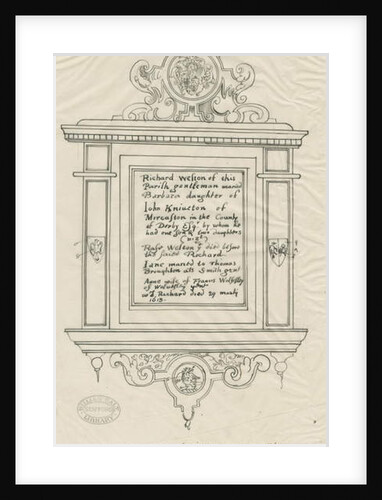 Richard Welson of this
Parish gentleman maried
Barbara daughter of
John Kniueton of
Mercaston in the County
of Derby Esqr by whom he
had one two daughters
died before
the saied Richard.
Iane maried to Thomas
Broughton als Smith gent
Anne wife of Francis Wolfesley
of
Richard died 29
1613.
LIBRARY